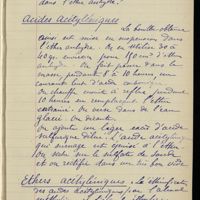 dans l'éther anhydre.
Acides acétyléniques
La bouillie obtenue
ainsi est mise en suspension dans
l'éther anhydre. On en utilise 30 à
40 gr. environ pour 150 cm³ d'éther
anhydre. On fait passer dans la
masse pendant 8 à 10 heures un
courant lent d'acide carbonique.
On chauffe ensuite à reflux pendant
10 heures en remplaçant l'éther
entraîné. On verse dans de l'eau
glacée, on décante.
On ajoute un léger excès d'acide
sulfurique dilué. L'acide acétylénique
qui surnage est épuisé à l'éther
on sèche sur le sulfate de soude
et on rectifie dans un bon vide
Ethers acétyléniques. La éthérification
des acides acétyléniques par l'alcool